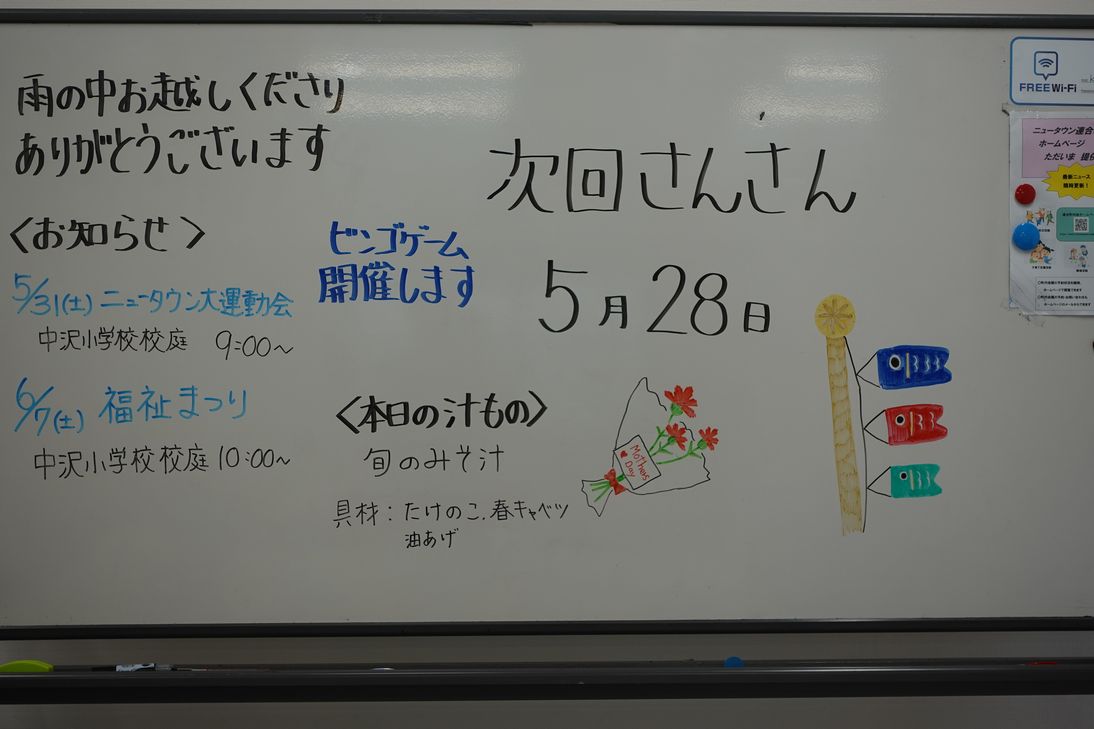 雨の中お越しくださり
ありがとうございます
〈お知らせ〉
5/31(土) ニュータウン大運動会
中沢小学校校庭 9:00～
6/7(土) 福祉まつり
中沢小学校校庭 10:00～
ビンゴゲーム
開催します
〈本日の汁もの〉
旬のみそ汁
具材：たけのこ、春キャベツ
油あげ
次回さんさん
5月28日
Mothers
Day
FREE Wi-Fi
ニュータウン連合
ホームページ
ただいま 提供
最新ニュース
随時更新！